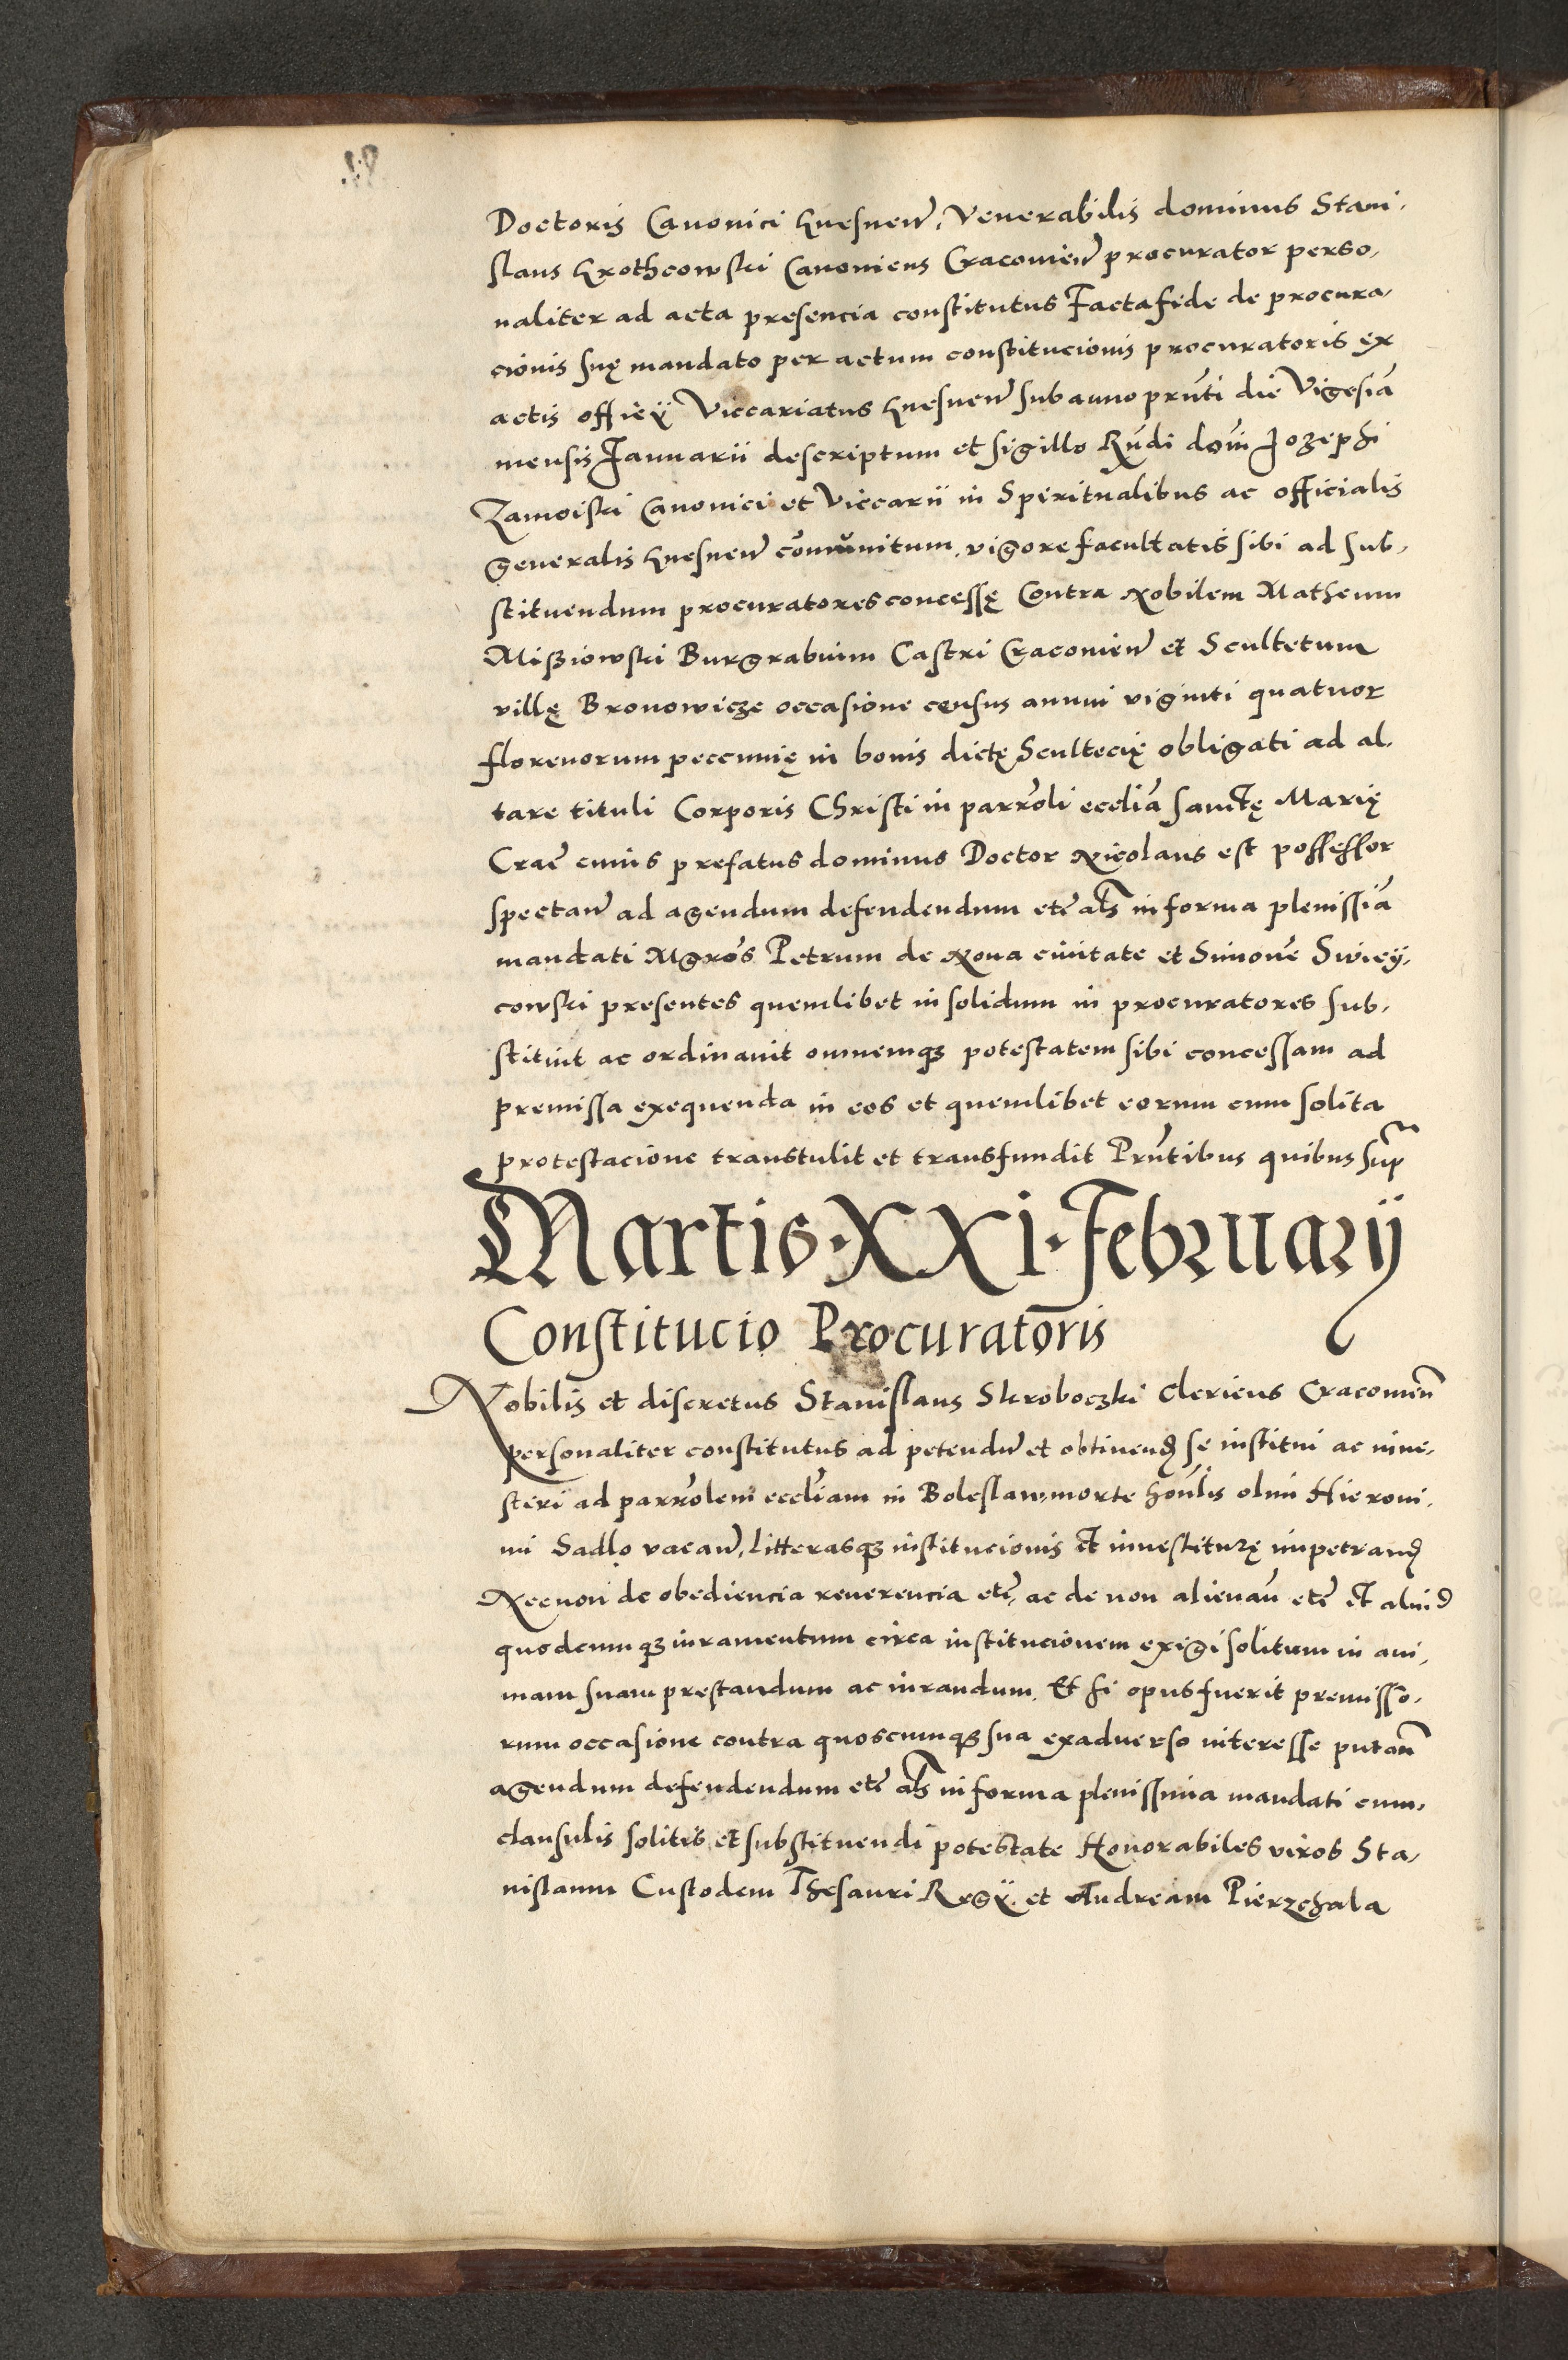 Doctoris Canonici Gnesnen̄. Venerabilis dominus Stani,
slaus Grothcowski Canonicus Cracovien̄ procurator perso,
naliter ad acta presencia constitutus Facta fide de procura,
cionis suę mandato per actum constitucionis procuratoris ex
actis officÿ Viccariatus Gnesnen̄ sub anno prn̄ti die Vigesiā
mensis Januarii descriptum et sigillo Rn̄di dom̄ Jozephi
Zamoiski Canonici et Viccarii in Spiritualibus ac officialis
generalis Gnesnen̄ com̄unitum, vigore facultatis sibi ad sub,
stituendum procuratores concessę Contra Nobilem Matheum
Misziowski Burgrabium Castri Cracovien̄ et Scultetum
villę Bronowicze occasione census annui viginti quatuor
florenorum peccunię in bonis dictę Scultecię obligati ad al,
tare tituli Corporis Christi in parrōli eccl̄ia sanctę Marię
Crac̄ cuius prefatus dominus Doctor Nicolaus est possessor
spectan̄ ad agendum defendendum etc̄ als̄ in forma plenissiā
mandati Mgrōs Petrum de Nova civitate et Simonē Swiey,
cowski presentes quemlibet in solidum in procuratores sub,
stituit ac ordinavit omnemqꝫ potestatem sibi concessam ad
premissa exequenda in eos et quemlibet eorum cum solita
protestacione transtulit et transfundit Prn̄tibus quibus sup̄
Martis · XXI · Februarij
Constitucio Procuratoris
Nobilis et discretus Stanislaus Skroboczki Clericus Cracovien̄
personaliter constitutus ad petendum̄ et obtinend̄ se institui ac inve,
stiri ad parrōlem eccl̄iam in Boleslaw, morte hon̄lis olim Hieroni,
mi Sadlo vacan̄, litterasqꝫ institucionis et investiturę impetrand̄
Necnon de obediencia reverencia etc̄, ac de non alienan̄ etc̄ et aliud
quodcumqꝫ iuramentum circa institucionem exigi solitum in ani,
mam suam prestandum ac iurandum. Et si opus fuerit premisso,
rum occasione contra quoscumqꝫ sua exadverso interesse putan̄
agendum defendendum etc̄ als̄ in forma plenissima mandati cum,
clausulis solitis et substituendi potestate Honorabiles viros Sta,
nislaum Custodem Thesauri Regÿ et Andream Pierzchala